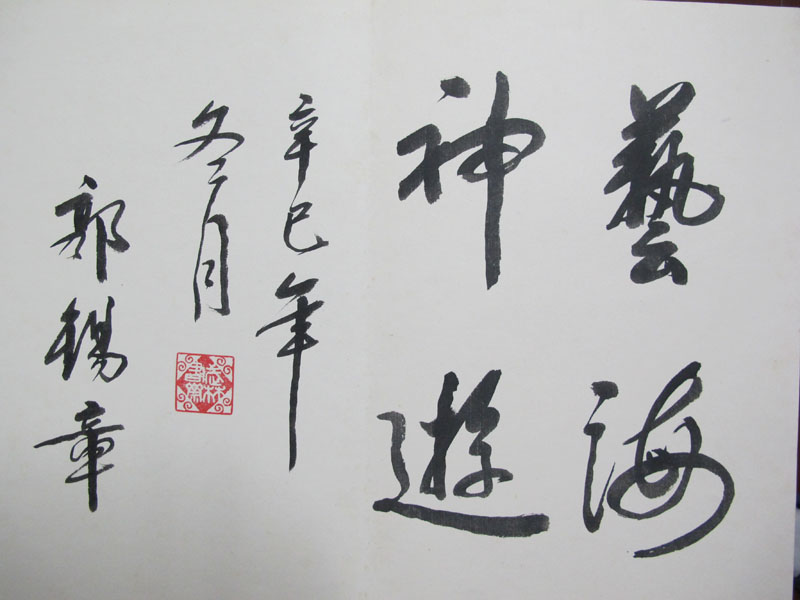 藝海
神遊
辛巳年
冬月
郭錫章